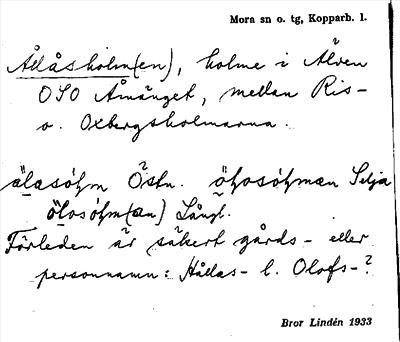 Mora sn o. tg, Kopparb. l.
Ållåsholm(en), holme i Älven
OSO Åmänget, mellan Ris-
o. Oxbergsholmarna.
Östn. Selja
Långl.
Förleden är säkert gårds- eller
personnamn: Hållas- l. Olofs-?
Bror Lindén 1933